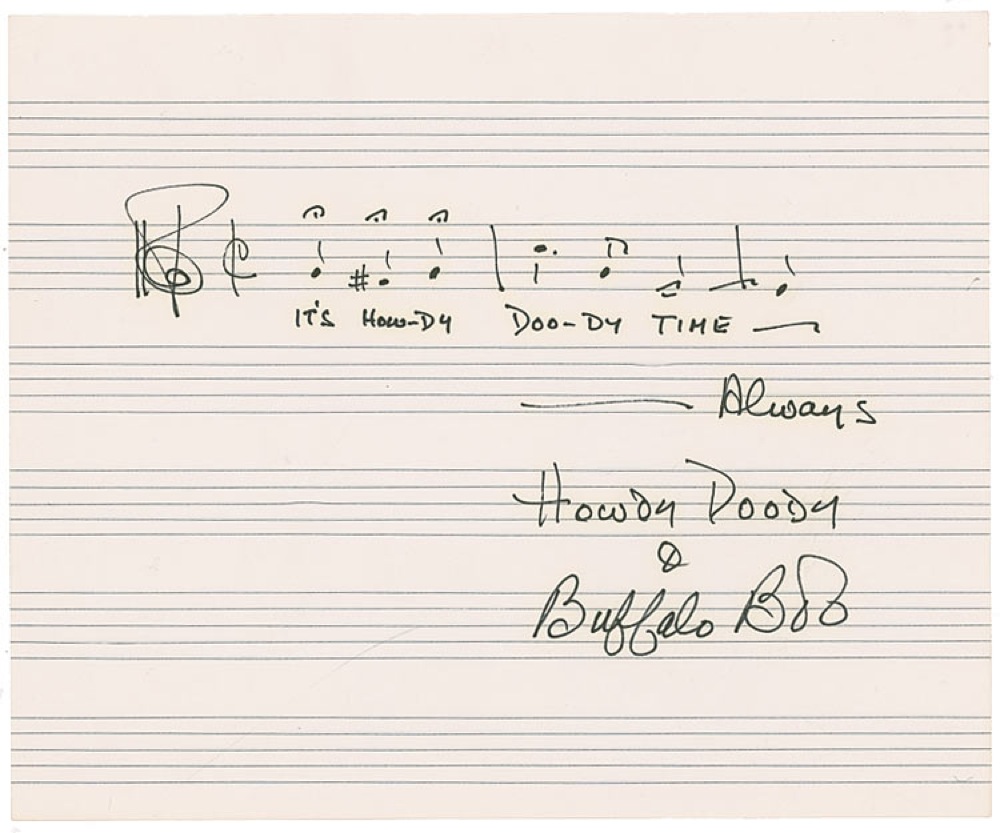 IT'S HOW-DY DOO-DY TIME
Always
Howdy Doody
&
Buffalo Bob